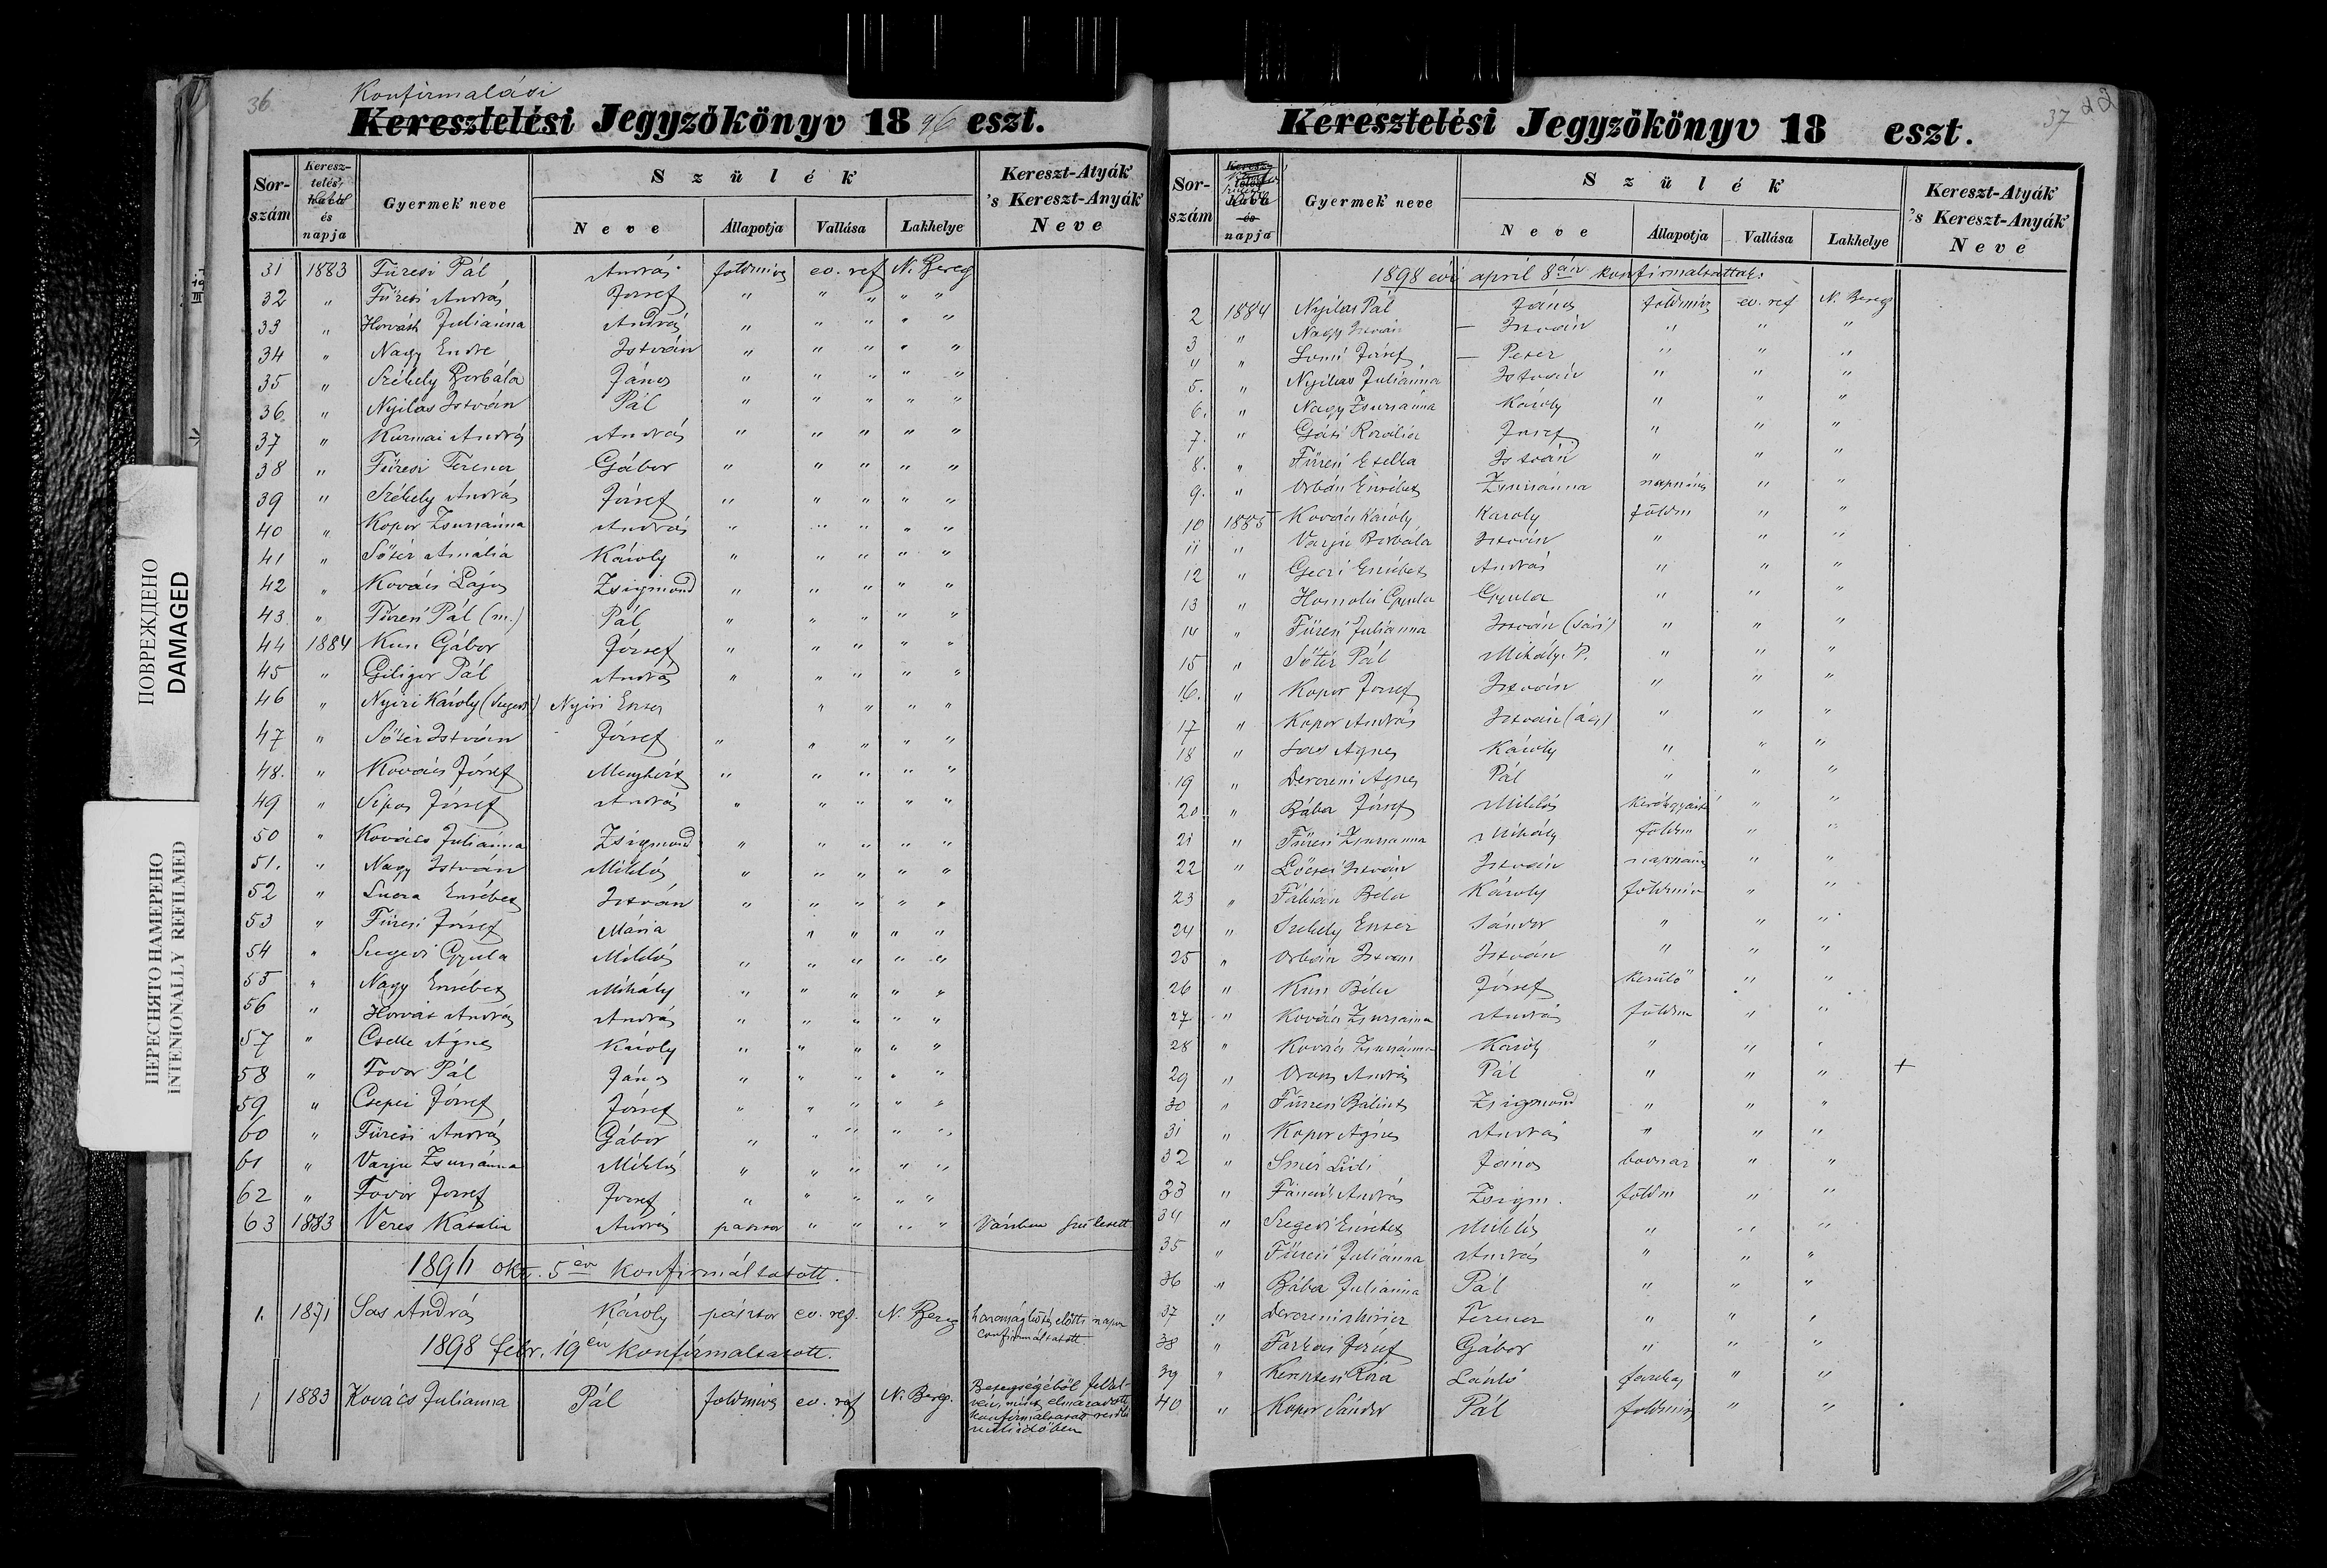 36
Konfirmalási
Keresztelési Jegyzőkönyv 1896 eszt.
Sor-szám Keresz-telés' hava és napja Gyermek' neve Szülék' Neve Állapotja Vallása Lakhelye Kereszt-Atyák 's Kereszt-Anyák' Neve
31 1883 Füresi Pál András földmives ev. ref N. Bereg
32 " Füresi András József " " " " "
33 " Horváth Juliánna András " " " " "
34 " Nagy Endre István " " " " "
35 " Székely Borbála János " " " " "
36 " Nyilas István Pál " " " " "
37 " Kurmai András András " " " " "
38 " Füresi Ferencz Gábor " " " " "
39 " Székely András József " " " " "
40 " Kopor Zsuzsánna András " " " " "
41 " Sőtér Amália Károly " " " " "
42 " Kovács Lajos Zsigmond " " " " "
43 " Füresi Pál (m.) Pál " " " " "
44 1884 Kun Gábor József " " " " "
45 " Giligor Pál András " " " " "
46 " Nyiri Károly Nyiri Eszter " " " "
47 " Sőtér István József " " " " "
48. " Kovács József Menyhért " " " " "
49 " Sipos József András " " " " "
50 " Kovács Juliánna Zsigmond " " " " "
51. " Nagy István Miklós " " " " "
52 " Erzsébet István " " " " "
53 " Füresi József Mária " " " "
54 " Szegedi Gyula Miklós " " " " "
55 " Nagy Erzsébet Mihály " " " " "
56 " Horvát András András " " " " "
57 " Cselle Ágnes Károly " " " " "
58 " Fodor Pál János " " " " "
59 " Csepei József József " " " " "
60 " Füresi András Gábor " " " " "
61 " Varju Zsuzsánna Miklós " " " " "
62 " Fodor József József " " " " "
63 1883 Veres Katalin András pásztor " " " " született
okt. 5én konfirmáltatott.
1. 1871 Sas András Károly pásztor ev. ref. N. Bereg házasságkötés előtti napon
confirmáltatott
1898 febr. 19én konfirmáltatott.
1 1883 Kovács Julianna Pál földmives ev. ref N. Bereg. Betegségéből
elmaradott
konfirmáltatott
37
Keresztelési Jegyzőkönyv 18 eszt.
Sor-szám Keresz-telés' hava és napja Gyermek' neve Szülék' Neve Állapotja Vallása Lakhelye Kereszt-Atyák 's Kereszt-Anyák' Neve
1898 évi april 8án konfirmáltattak:
2 1884 Nyilas Pál János földmives ev. ref N. Bereg
3 " Nagy István – István " " "
4 " József – Peter " " "
5. " Nyilas Juliánna István " " "
6. " Nagy Zsuzsánna Károly " " "
7. " Rozália József " " "
8. " Füresi Etelka István " " "
9. " Orbán Erzsébet Zsuzsánna napszámos " "
10 1885 Kovács Károly Károly földm " "
11 " Varju Borbála István " " "
12 " Geczi Erzsébet András " " "
13 " Homoki Gyula Gyula " " "
14 " Füresi Juliánna István " " "
15 " Sőtér Pál Mihály. P. " " "
16. " Kopor József István " " "
17 " Kopor András István " " "
18 " Sas Ágnes Károly " " "
19 " Derczeni Ágnes Pál " " "
20 " Bába József Miklós " "
21 " Füresi Zsuzsanna Mihály földm " "
22 " Lőcsei István István napszám " "
23 " Fábián Bela Károly földmiv " "
24 " Székely Eszter Sándor " " "
25 " Orbán István István " " "
26 " Kun Béla József kerülő " "
27 " Kovács Zsuzsánna András földm " "
28 " Kovács Zsuzsánna Károly " " "
29 " András Pál " " " +
30 " Füresi Bálint Zsigmond " " "
31 " Kopor Ágnes András " " "
32 " Lidi János " "
33 " András Zsigm. földm " "
34 " Szegedi Erzsébet Miklós " " "
35 " Füresi Juliánna András " " "
36 " Bába Juliánna Pál " " "
37 " Derczeni Ferencz " " "
38 " Farkas József Gábor " " "
39 " Róza László " "
40 " Kopor Sándor Pál földmives " "
ПОВРЕЖДЕНО
DAMAGED
ПЕРЕСНЯТО НАМЕРЕНО
INTENIONALLY REFILMED